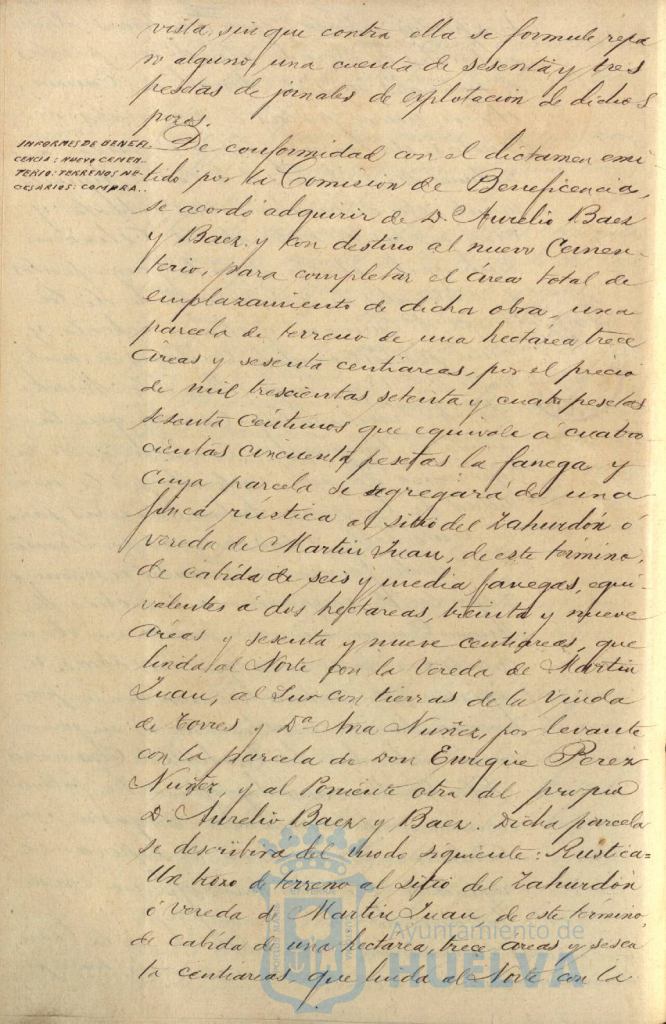 vista, sin que contra ella se formule repa
ro alguno, una cuenta de sesenta y tres
pesetas de jornales de explotación de dichos
pozos.
INFORMES DE BENEFI-
CENCIA: NUEVO CEMEN-
TERIO: TERRENOS NE-
CESARIOS: COMPRA..
De conformidad con el dictamen emi-
tido por la Comision de Beneficencia,
se acordó adquirir de D. Aurelio Baez
y Baez y con destino al nuevo Cemen-
terio, para completar el área total de
emplazamiento de dicha obra, una
parcela de terreno de una hectárea trece
áreas y sesenta centiareas, por el precio
de mil trescientas setenta y cuatro pesetas
sesenta céntimos que equivale á cuatro
cientas cincuenta pesetas la fanega y
cuya parcela se segregará de una
finca rústica al sitio del Zahurdón ó
vereda de Martin Juan, de este término,
de cabida de seis y media fanegas, equi-
valentes á dos hectáreas, treinta y nueve
áreas y sesenta y nueve centiareas, que
linda al Norte con la Vereda de Martin
Juan, al Sur con tierras de la Viuda
de Torres y Dª Ana Nuñez, por levante
con la parcela de Don Enrique Perez
Nuñez, y al Poniente otra del propio
D. Aurelio Baez y Baez. Dicha parcela
se describirá del modo siguiente: Rustica=
Un trozo de terreno al sitio del Zahurdón
ó vereda de Martin Juan, de este término,
de cabida de una hectarea, trece areas y sesen
ta centiareas, que linda al Norte con la
Ayuntamiento de
HUELVA